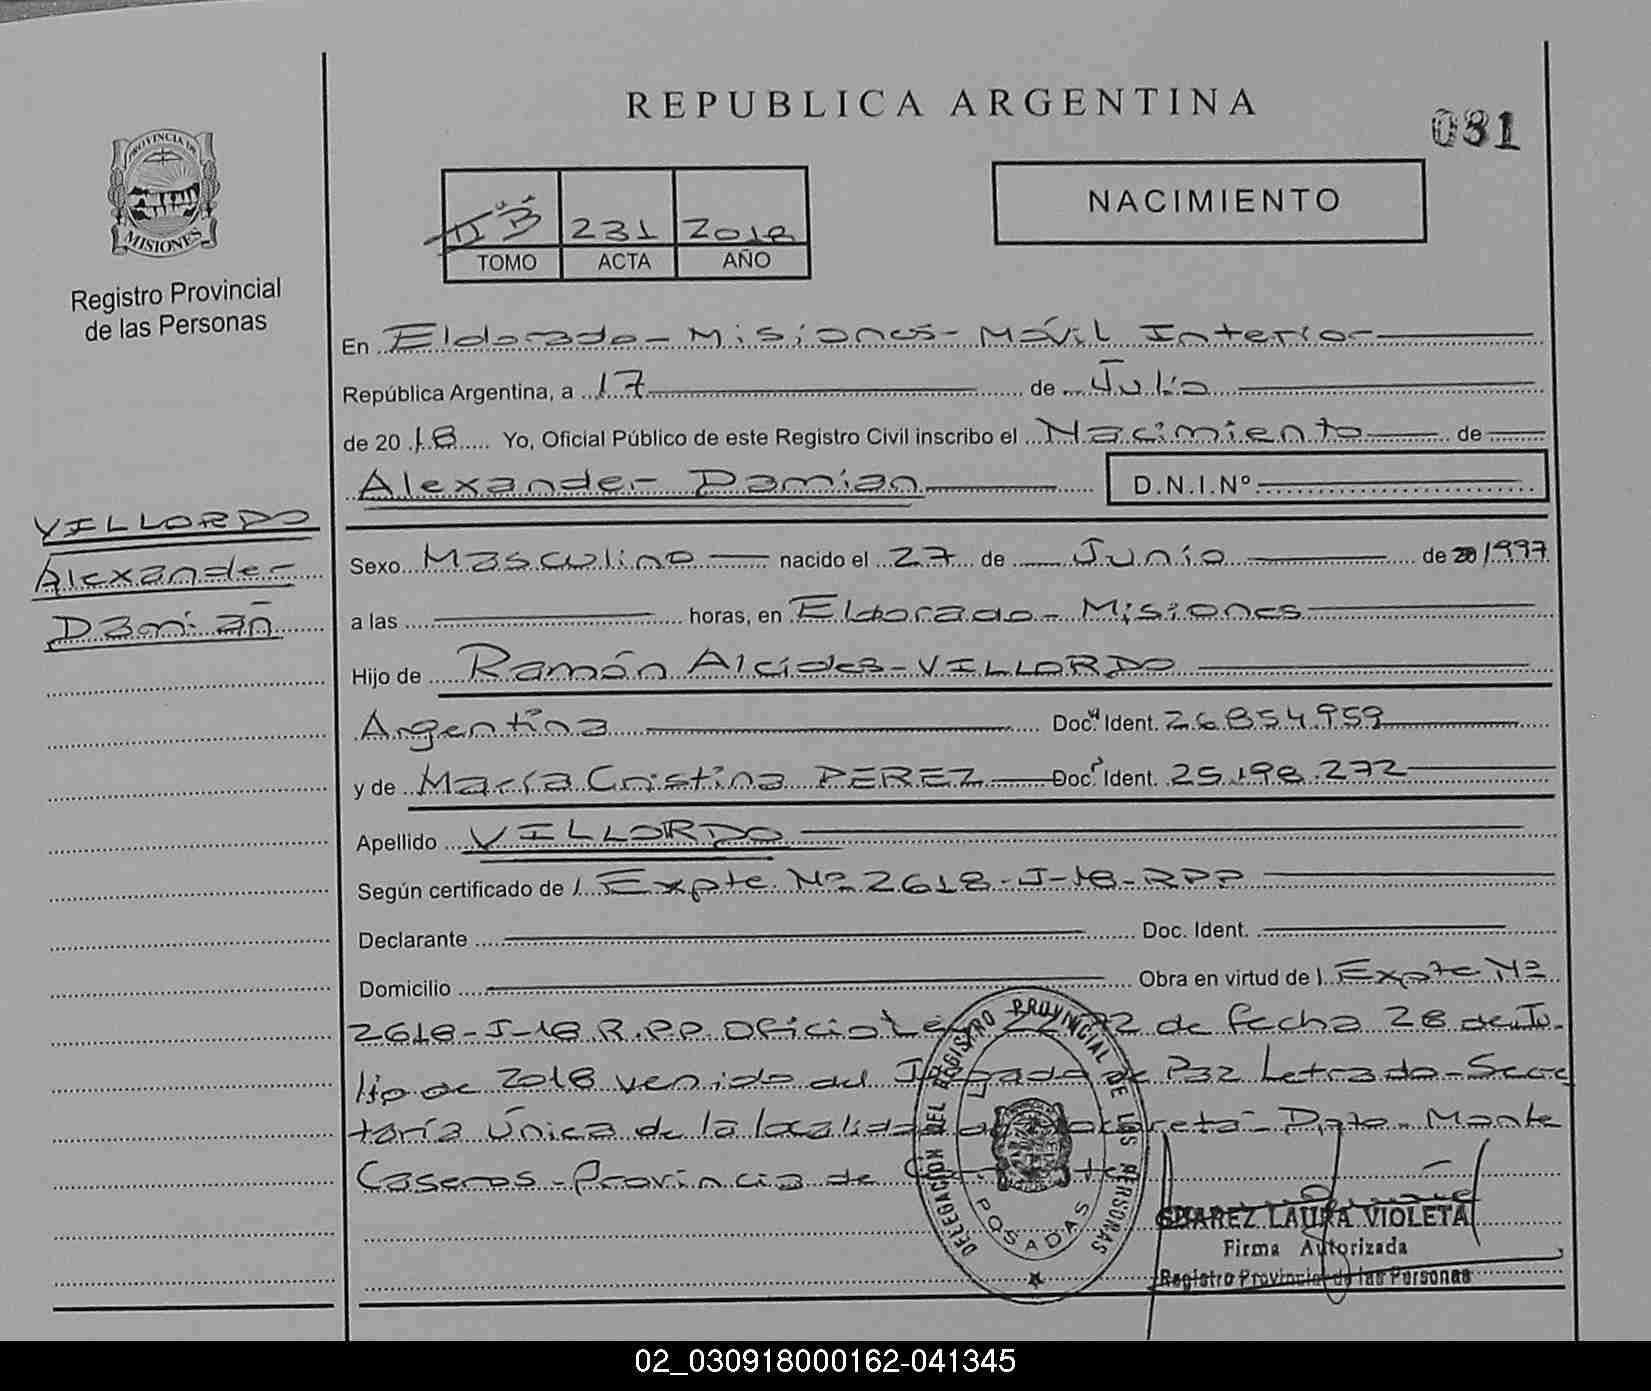 REPUBLICA ARGENTINA
031
PROVINCIA DE
MISIONES
Registro Provincial
de las Personas
II B 231 2018
TOMO ACTA AÑO
NACIMIENTO
En Eldorado - Misiones - Móvil Interior
República Argentina, a 17 de Julio
de 2018 Yo, Oficial Público de este Registro Civil inscribo el Nacimiento de
Alexander Damian D.N.I.Nº
VILLORDO
Alexander
Damian
Sexo Masculino nacido el 27 de Junio de 20 1997
a las horas, en Eldorado - Misiones
Hijo de Ramón Alcides - VILLORDO
Argentina Doc. Ident. 26.854.959
y de María Cristina PEREZ Doc. Ident. 25.198.272
Apellido VILLORDO
Según certificado de l. Expte. Nº 2618-J-18-RPP
Declarante Doc. Ident.
Domicilio Obra en virtud de l. Expte Nº
2618-J-18 R.P.P. Oficio de fecha 28 de Ju-
lio de 2018 venido del Juzgado de Paz Letrado - Secre
taría Única de la localidad de - Dpto. Monte
Caseros - Provincia de
DELEGACION DEL REGISTRO PROVINCIAL DE LAS PERSONAS
POSADAS
SUAREZ LAURA VIOLETA
Firma Autorizada
Registro Provincial de las Personas
02_030918000162-041345